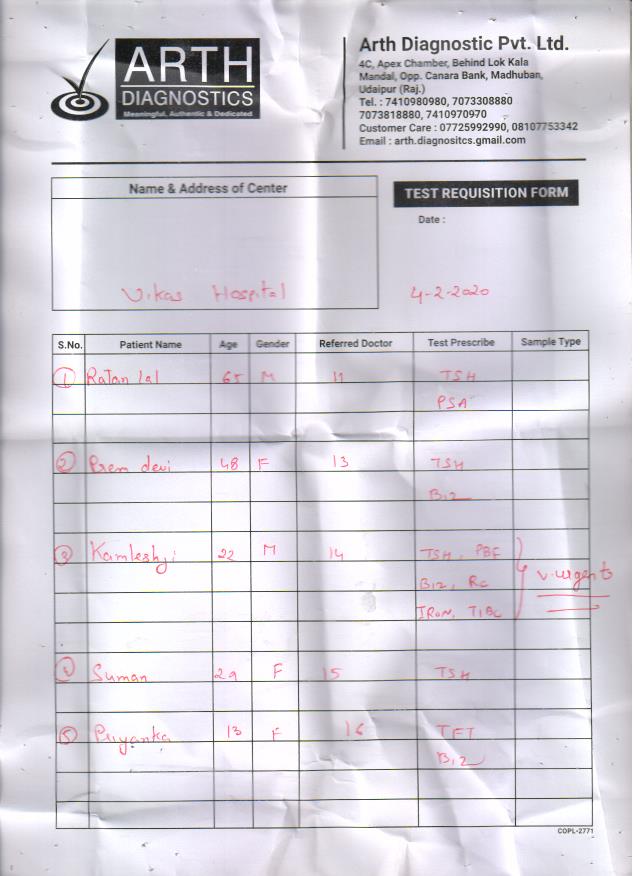 ARTH
DIAGNOSTICS
Meaningful, Authentic & Dedicated
Arth Diagnostic Pvt. Ltd.
4C, Apex Chamber, Behind Lok Kala
Mandal, Opp. Canara Bank, Madhuban,
Udaipur (Raj.)
Tel. : 7410980980, 7073308880
7073818880, 7410970970
Customer Care : 07725992990, 08107753342
Email : arth.diagnositcs.gmail.com
Name & Address of Center
Vikas Hospital
TEST REQUISITION FORM
Date :
4-2-2020
S.No. Patient Name Age Gender Referred Doctor Test Prescribe Sample Type
1 Ratan lal 65 M 11 TSH
PSA
2 Prem devi 48 F 13 TSH
B12
3 Kamleshji 22 M 14 TSH, PBF
B12, RC
IRON, TIBC
v.urgent
4 Suman 29 F 15 TSH
5 Priyanka 13 F 16 TFT
B12
COPL-2771